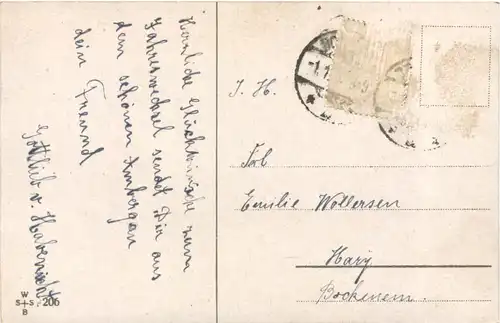 Herzliche Glückwünsche zum
Jahreswechsel sendet Dir aus
dem schönen Ambergau
dein Freund
Gottlieb v. Habenicht
I. H.
Frl.
Emilie Wollersen
Hary
Bockenem.
W
S + S
B
206